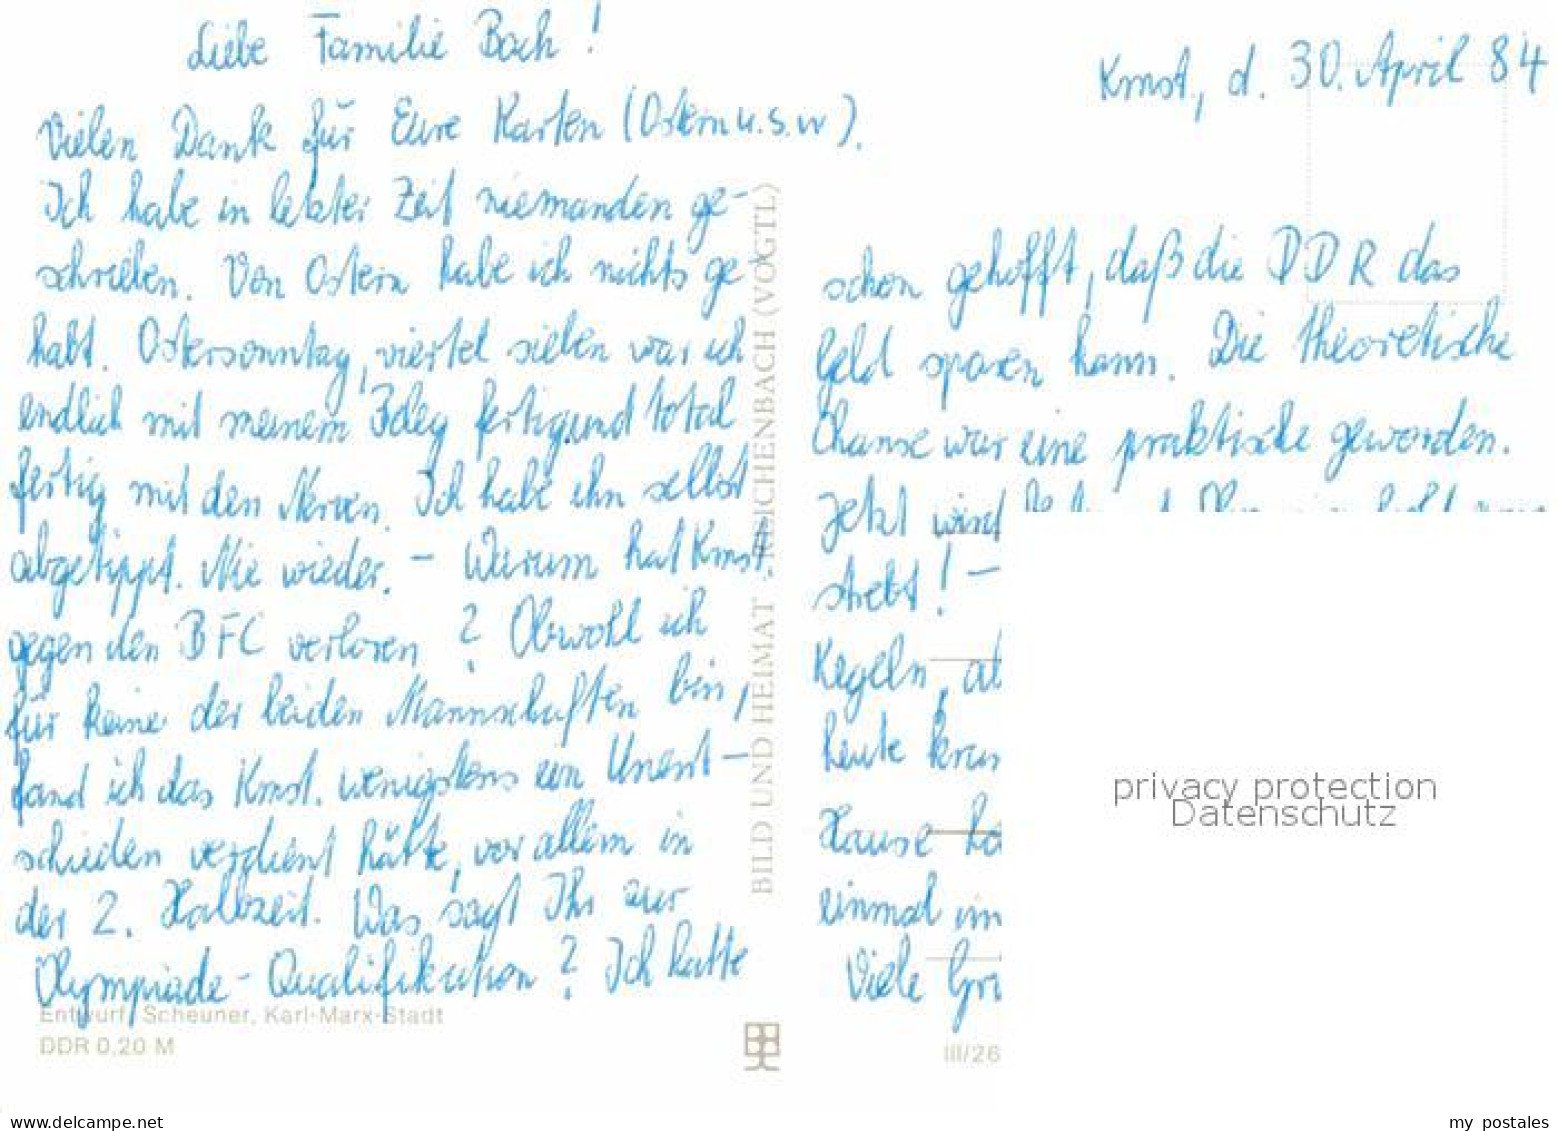 Liebe Familie Bach!
Vielen Dank für Eure Karten (Ostern u.s.w).
Ich habe in letzter Zeit niemanden ge-
schrieben. Von Ostern habe ich nichts ge
habt. Ostersonntag, viertel sieben war ich
endlich mit meinem Beleg fertig und total
fertig mit den Nerven. Ich habe ihn selbst
abgetippt. Nie wieder. - Warum hat Kmst.
gegen den BFC verloren? Obwohl ich
für keine der beiden Mannschaften bin,
fand ich das Kmst. wenigstens ein Unent-
schieden verdient hätte, vor allem in
der 2. Halbzeit. Was sagt Ihr zur
Olympiade-Qualifikation? Ich hatte
Entwurf: Scheuner, Karl-Marx-Stadt
DDR 0,20 M
BILD UND HEIMAT REICHENBACH (VOGTL)
Kmst, d. 30. April 84
schon gehofft, daß die DDR das
Geld sparen kann. Die theoretische
Chanse war eine praktische geworden.
Jetzt wird
strebt! -
Kegeln,
heute
Hause
einmal im
Viele
III/26
privacy protection
Datenschutz
www.delcampe.net
my_postales